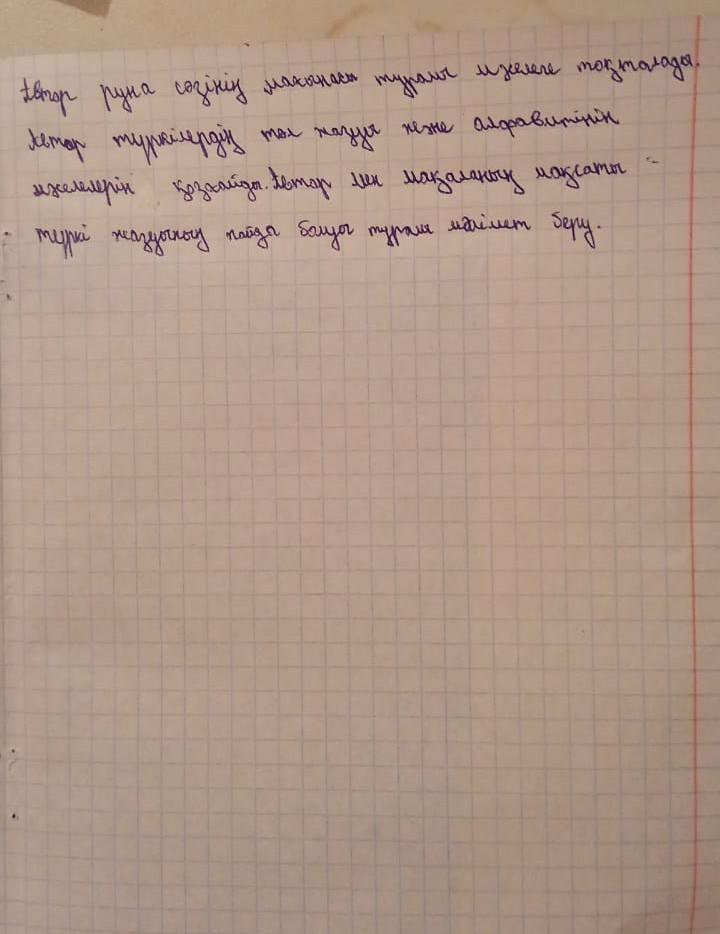 Автор руна сөзінің махынасы туралы мәселеге тоқталады.
Автор түркілердің төл жазуы және алфавитінің
мәселелерін қозғайды. Автор мен мақаланың мақсаты -
түркі жазуының пайда болуы туралы мәлімет беру.